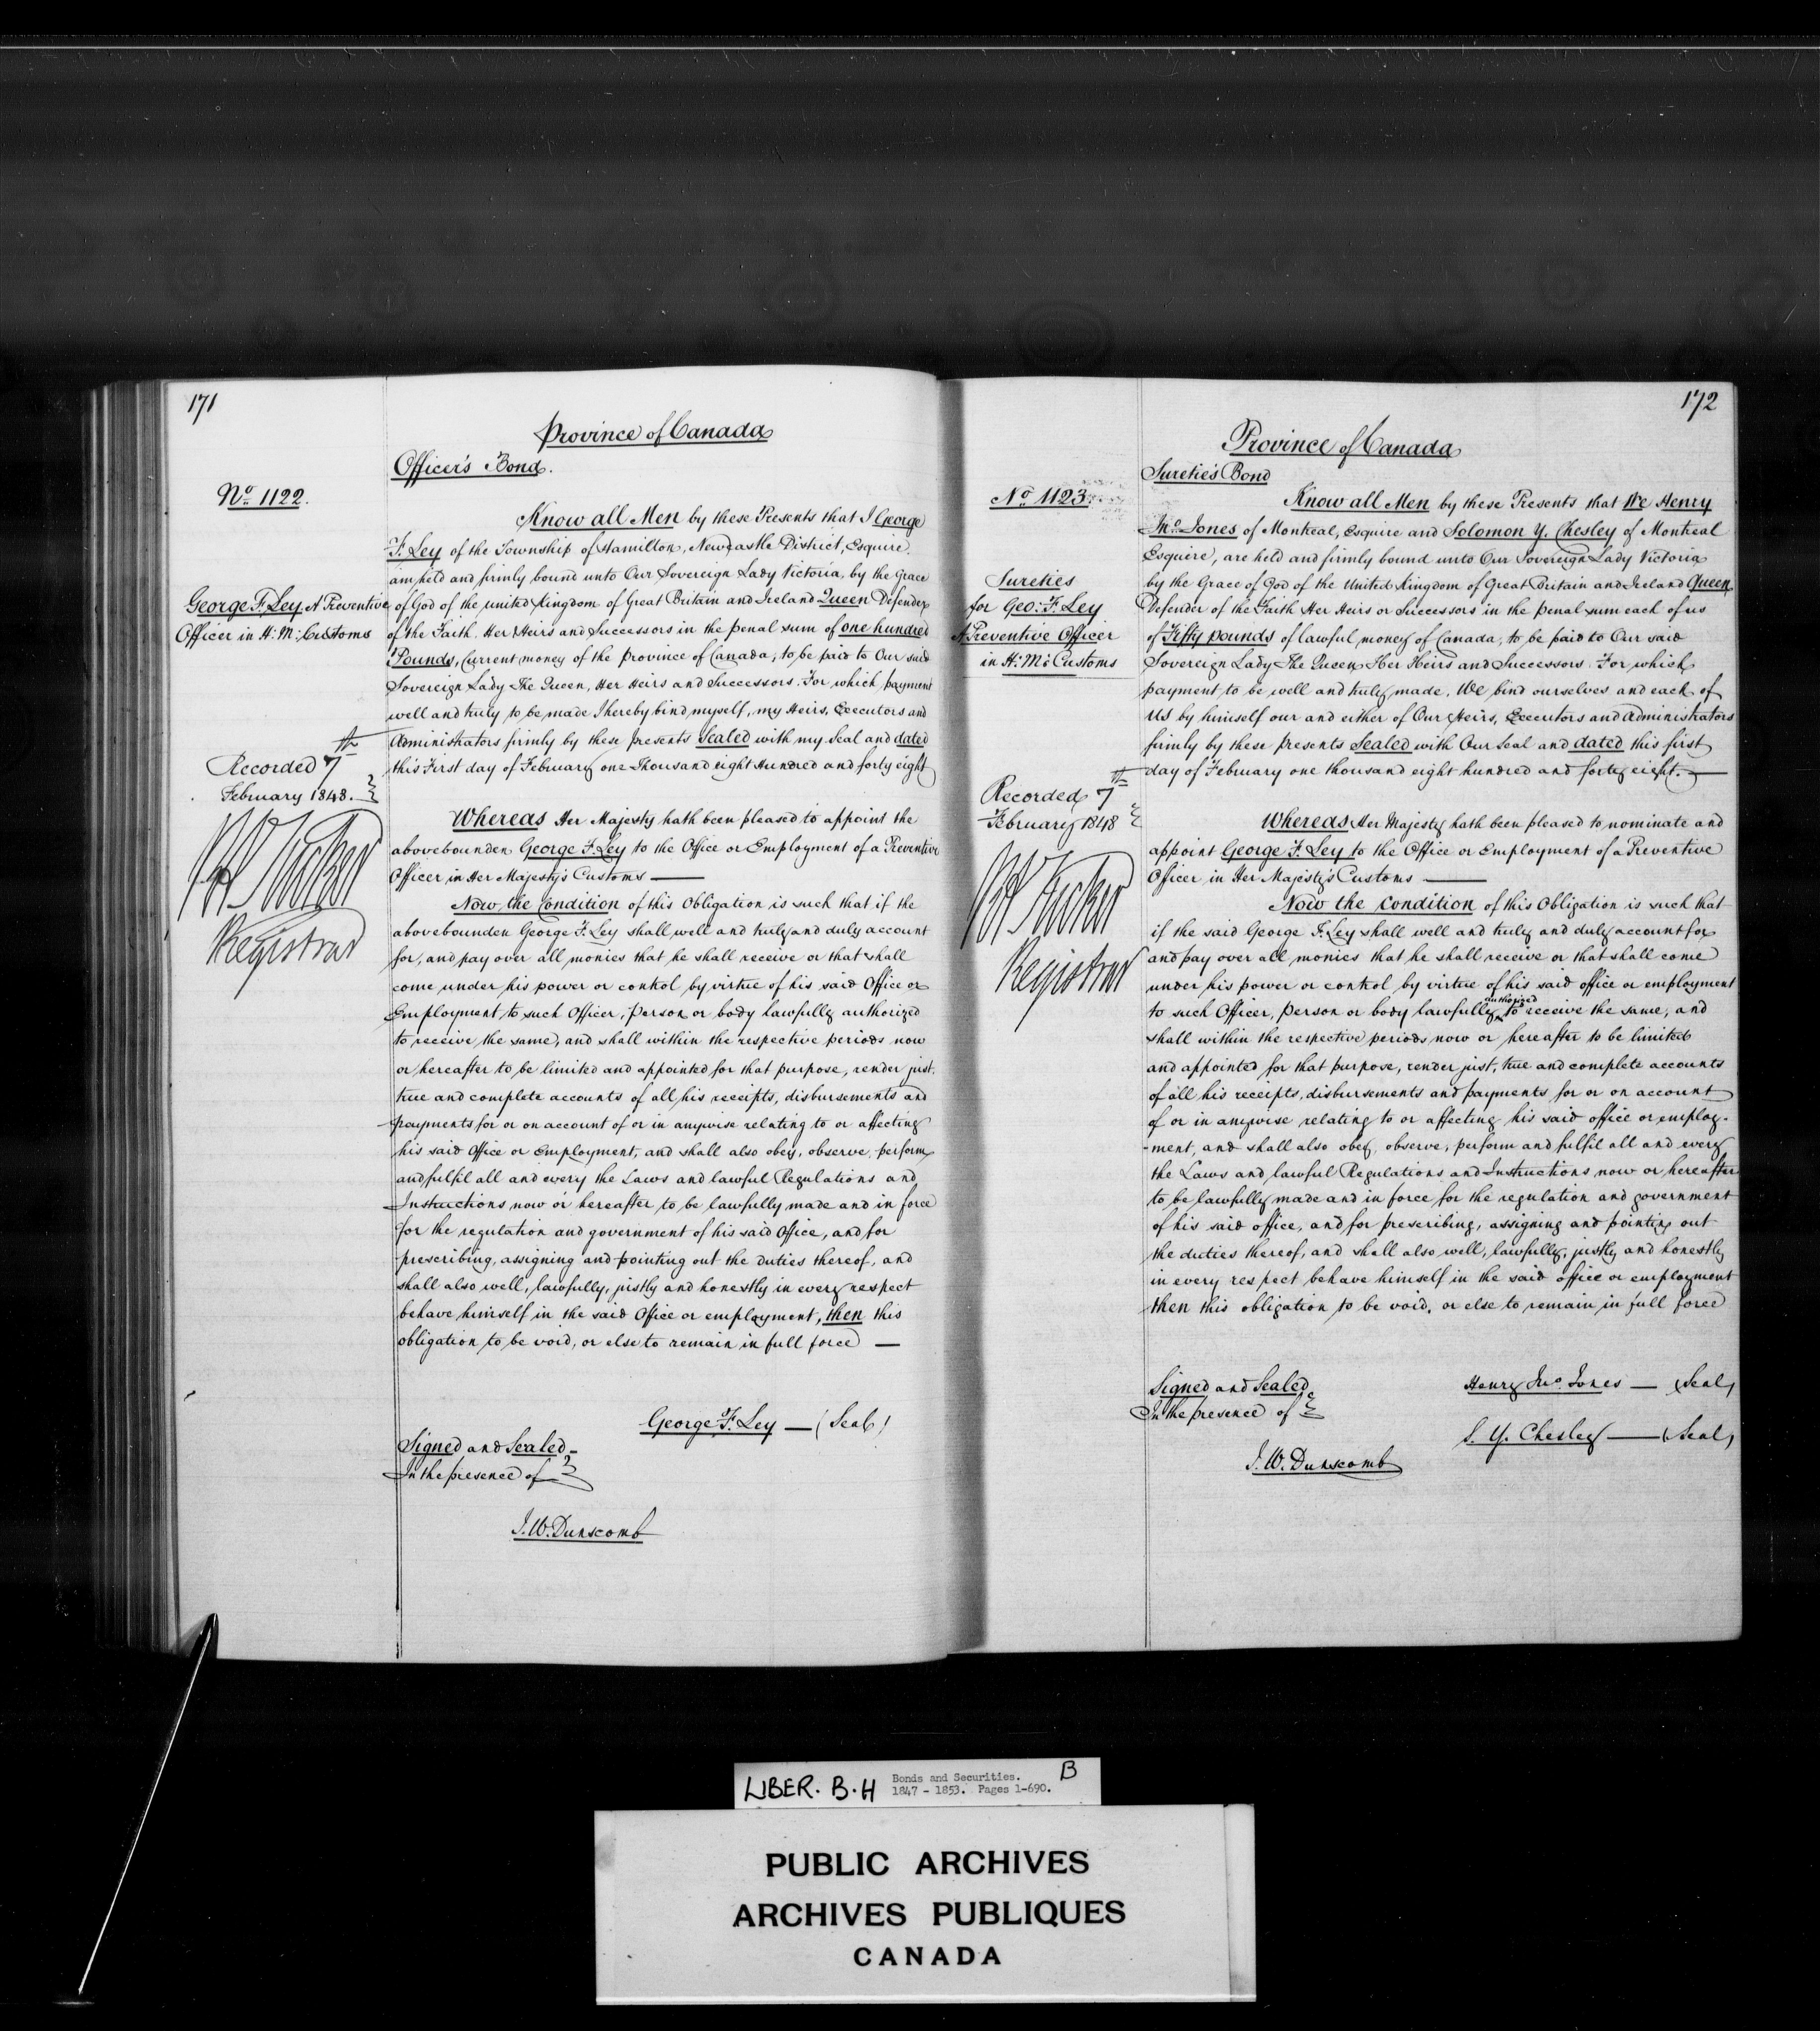 171
Province of Canada
Officer's Bond.
No 1122.
Know all Men by these Presents that I George
F. Ley of the Township of Hamilton, Newcastle District, Esquire
am held and firmly bound unto Our Sovereign Lady Victoria, by the Grace
George F. Ley A Preventive
Officer in H: M: Customs
of God of the united Kingdom of Great Britain and Ireland Queen Defender
of the Faith. Her Heirs and Successors in the penal sum of one hundred
Pounds, Current money of the Province of Canada, to be paid to Our said
Sovereign Lady The Queen, Her Heirs and Successors. For which payment
well and truly to be made I hereby bind myself, my Heirs, Executors and
Administrators firmly by these presents Sealed with my Seal and dated
this First day of February one Thousand eight Hundred and forty eight
Recorded 7th
February 1848.
Registrar
Whereas Her Majesty hath been pleased to appoint the
abovebounden George F. Ley to the Office or Employment of a Preventive
Officer in Her Majesty's Customs —
Now the Condition of this Obligation is such that if the
abovebounden George F. Ley shall well and truly and duly account
for, and pay over all monies that he shall receive or that shall
come under his power or control by virtue of his said Office or
Employment to such Officer, Person or body lawfully authorized
to receive the same, and shall within the respective periods now
or hereafter to be limited and appointed for that purpose, render just.
true and complete accounts of all his receipts, disbursements and
payments for or on account of or in anywise relating to or affecting
his said Office or Employment, and shall also obey, observe, perform
and fulfil all and every the Laws and lawful Regulations and
Instructions now or hereafter to be lawfully made and in force
for the regulation and government of his said Office, and for
prescribing, assigning and pointing out the duties thereof, and
shall also well, lawfully, justly and honestly in every respect
behave himself in the said Office or employment, then this
obligation to be void, or else to remain in full force —
George F. Ley — (Seal)
Signed and Sealed
In the presence of
J. W. Dunscomb
172
Province of Canada
Suretie's Bond
No 1123.
Know all Men by these Presents that We Henry
Jno. Jones of Montreal, Esquire and Solomon Y. Chesley of Montreal
Esquire, are held and firmly bound unto Our Sovereign Lady Victoria
by the Grace of God of the United Kingdom of Great Britain and Ireland Queen
Defender of the Faith Her Heirs or Successors in the penal sum each of us
of Fifty pounds of lawful money of Canada, to be paid to Our said
Sovereign Lady The Queen Her Heirs and Successors. For which
payment to be well and truly made, We bind ourselves and each of
us by himself our and either of Our Heirs, Executors and Administrators
firmly by these presents Sealed with Our Seal and dated this first
day of February one thousand eight hundred and forty eight. —
Sureties
for Geo: F. Ley
A Preventive Officer
in H: M: Customs
Recorded 7th
February 1848
Registrar
Whereas Her Majesty hath been pleased to nominate and
appoint George F. Ley to the Office or Employment of a Preventive
Officer in Her Majesty's Customs —
Now the Condition of this Obligation is such that
if the said George F. Ley shall well and truly and duly account for
and pay over all monies that he shall receive or that shall come
under his power or control by virtue of his said office or employment
to such Officer, Person or body lawfully authorized to receive the same, and
shall within the respective periods now or hereafter to be limited
and appointed for that purpose, render just, true and complete accounts
of all his receipts, disbursements and payments for or on account
of or in anywise relating to or affecting his said office or employ-
-ment, and shall also obey, observe, perform and fulfil all and every
the Laws and lawful Regulations and Instructions now or hereafter
to be lawfully made and in force for the regulation and government
of his said office, and for prescribing, assigning and pointing out
the duties thereof, and shall also well, lawfully, justly and honestly
in every respect behave himself in the said office or employment
then this obligation to be void, or else to remain in full force
Signed and Sealed
In the presence of
Henry Jno. Jones — (Seal)
S. Y. Chesley — (Seal)
J. W. Dunscomb
LIBER. B. H
Bonds and Securities. B
1847 - 1853. Pages 1-690.
PUBLIC ARCHIVES
ARCHIVES PUBLIQUES
CANADA